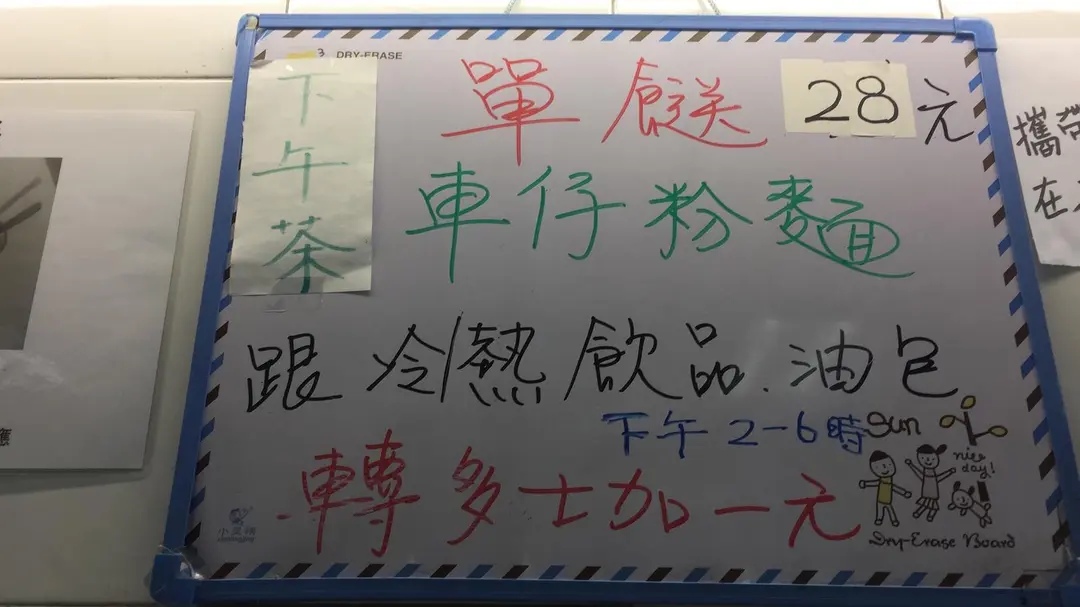 3 DRY-ERASE
下午茶
單餸送 28元
車仔粉麵
跟冷/熱飲品.油包
下午2-6時
轉多士加一元
sun
nice day!
Dry-Erase Board
攜帶
在
應